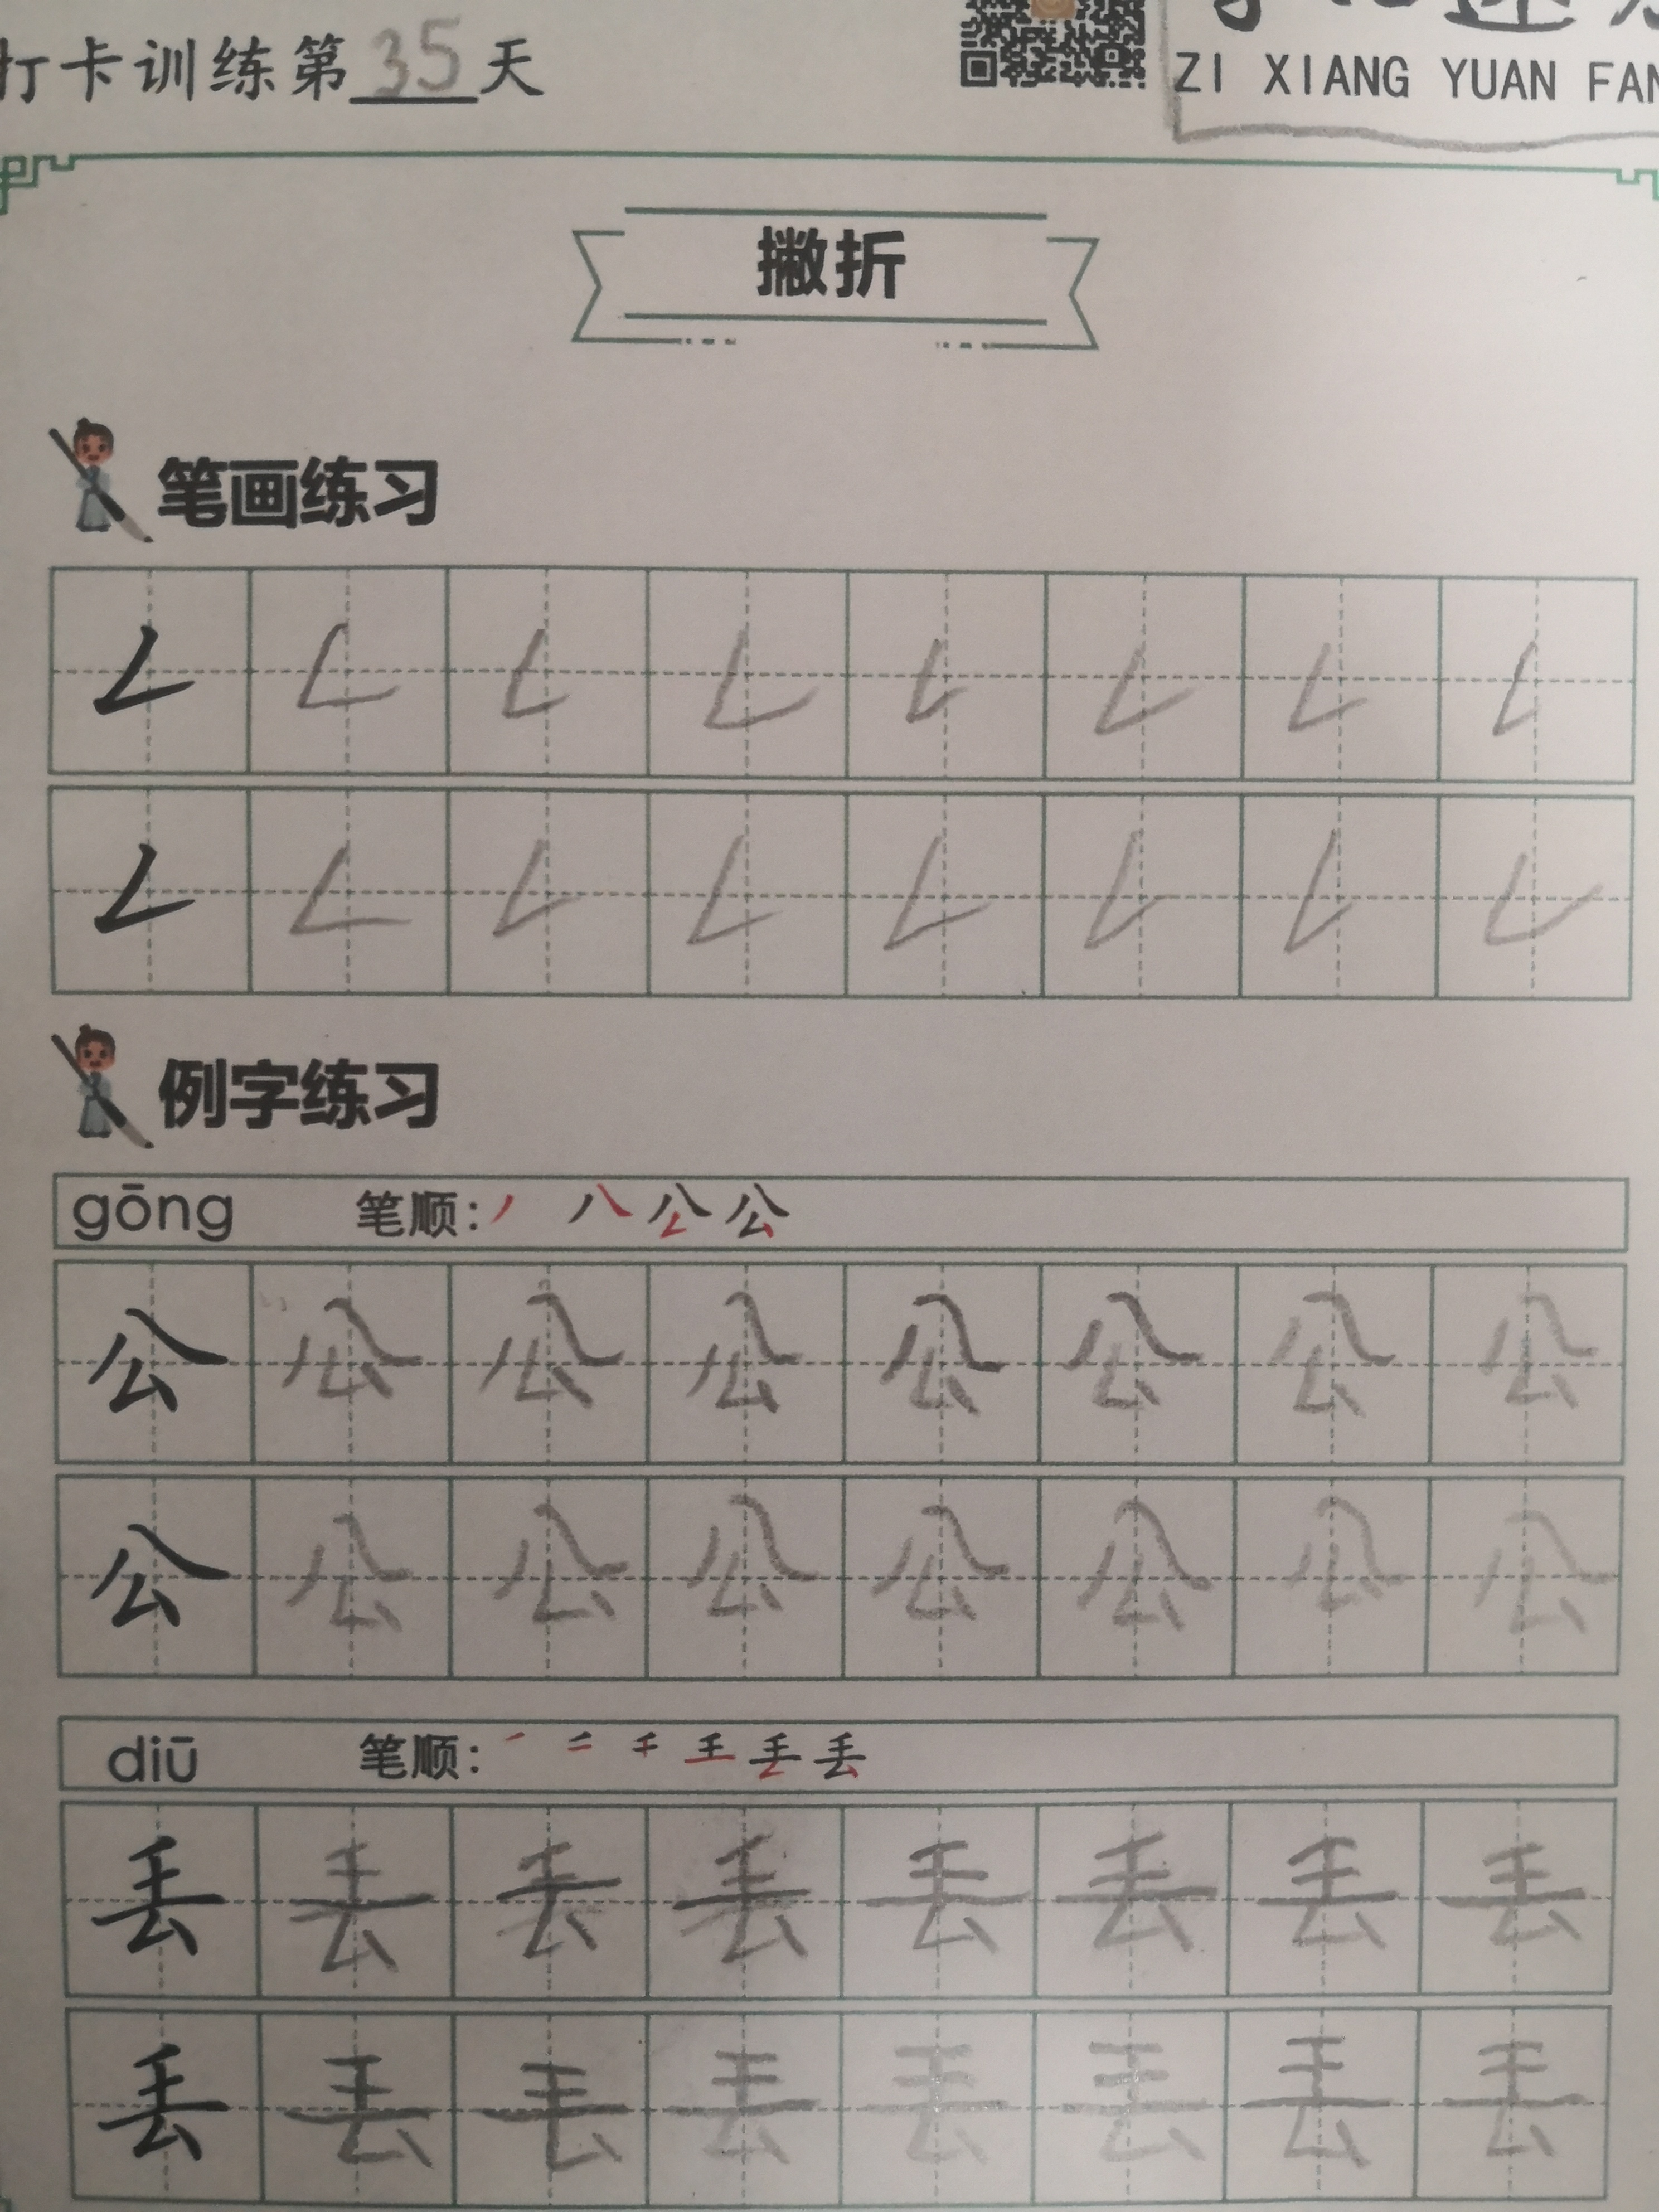 打卡训练第35天
ZI XIANG YUAN FAN
撇折
笔画练习
例字练习
gōng 笔顺: 丿 八 公 公
公 公 公 公 公 公 公 公
公 公 公 公 公 公 公 公
diū 笔顺: 丢 丢
丢 丢 丢 丢 丢 丢 丢 丢
丢 丢 丢 丢 丢 丢 丢 丢